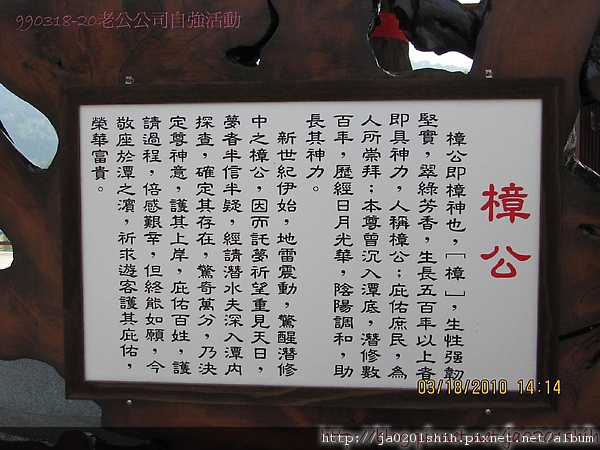 990318-20老公公司自強活動
樟公
樟公即樟神也，「樟」，生性強韌
堅實，翠綠芳香，生長五百年以上者
即具神力，人稱樟公；庇佑庶民，為
人所崇拜；本尊曾沉入潭底，潛修數
百年，歷經日月光華，陰陽調和，助
長其神力。
新世紀伊始，地雷震動，驚醒潛修
中之樟公，因而託夢祈望重見天日，
夢者半信半疑，經請潛水夫深入潭內
探查，確定其存在，驚奇萬分，乃決
定尊神意，護其上岸，庇佑百姓，護
請過程，倍感艱辛，但終能如願，今
敬座於潭之濱，祈求遊客護其庇佑，
榮華富貴。
03/18/2010 14:14
http://ja0201shih.pixnet.net/album